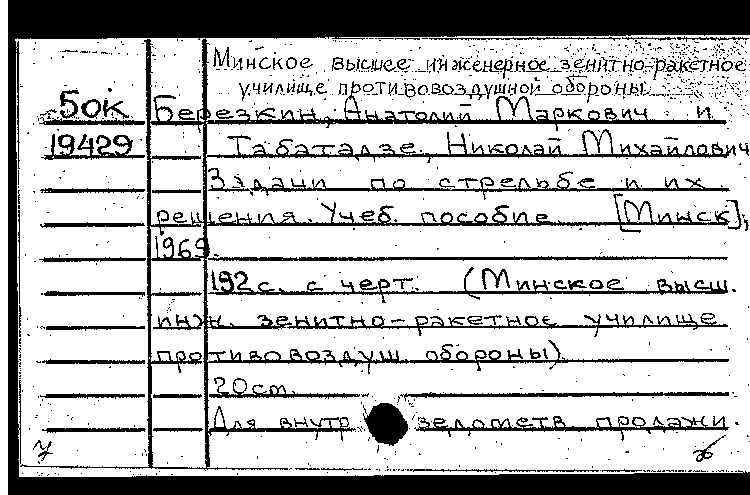 Минское высшее инженерное зенитно-ракетное
училище противовоздушной обороны.
5ок Березкин, Анатолий Маркович и
19429 Табатадзе, Николай Михайлович
Задачи по стрельбе и их
решения. Учеб. пособие [Минск],
1969.
192 с. с черт. (Минское высш.
инж. зенитно-ракетное училище
противовоздуш. обороны).
20 см.
Для внутр ведомств продажи.